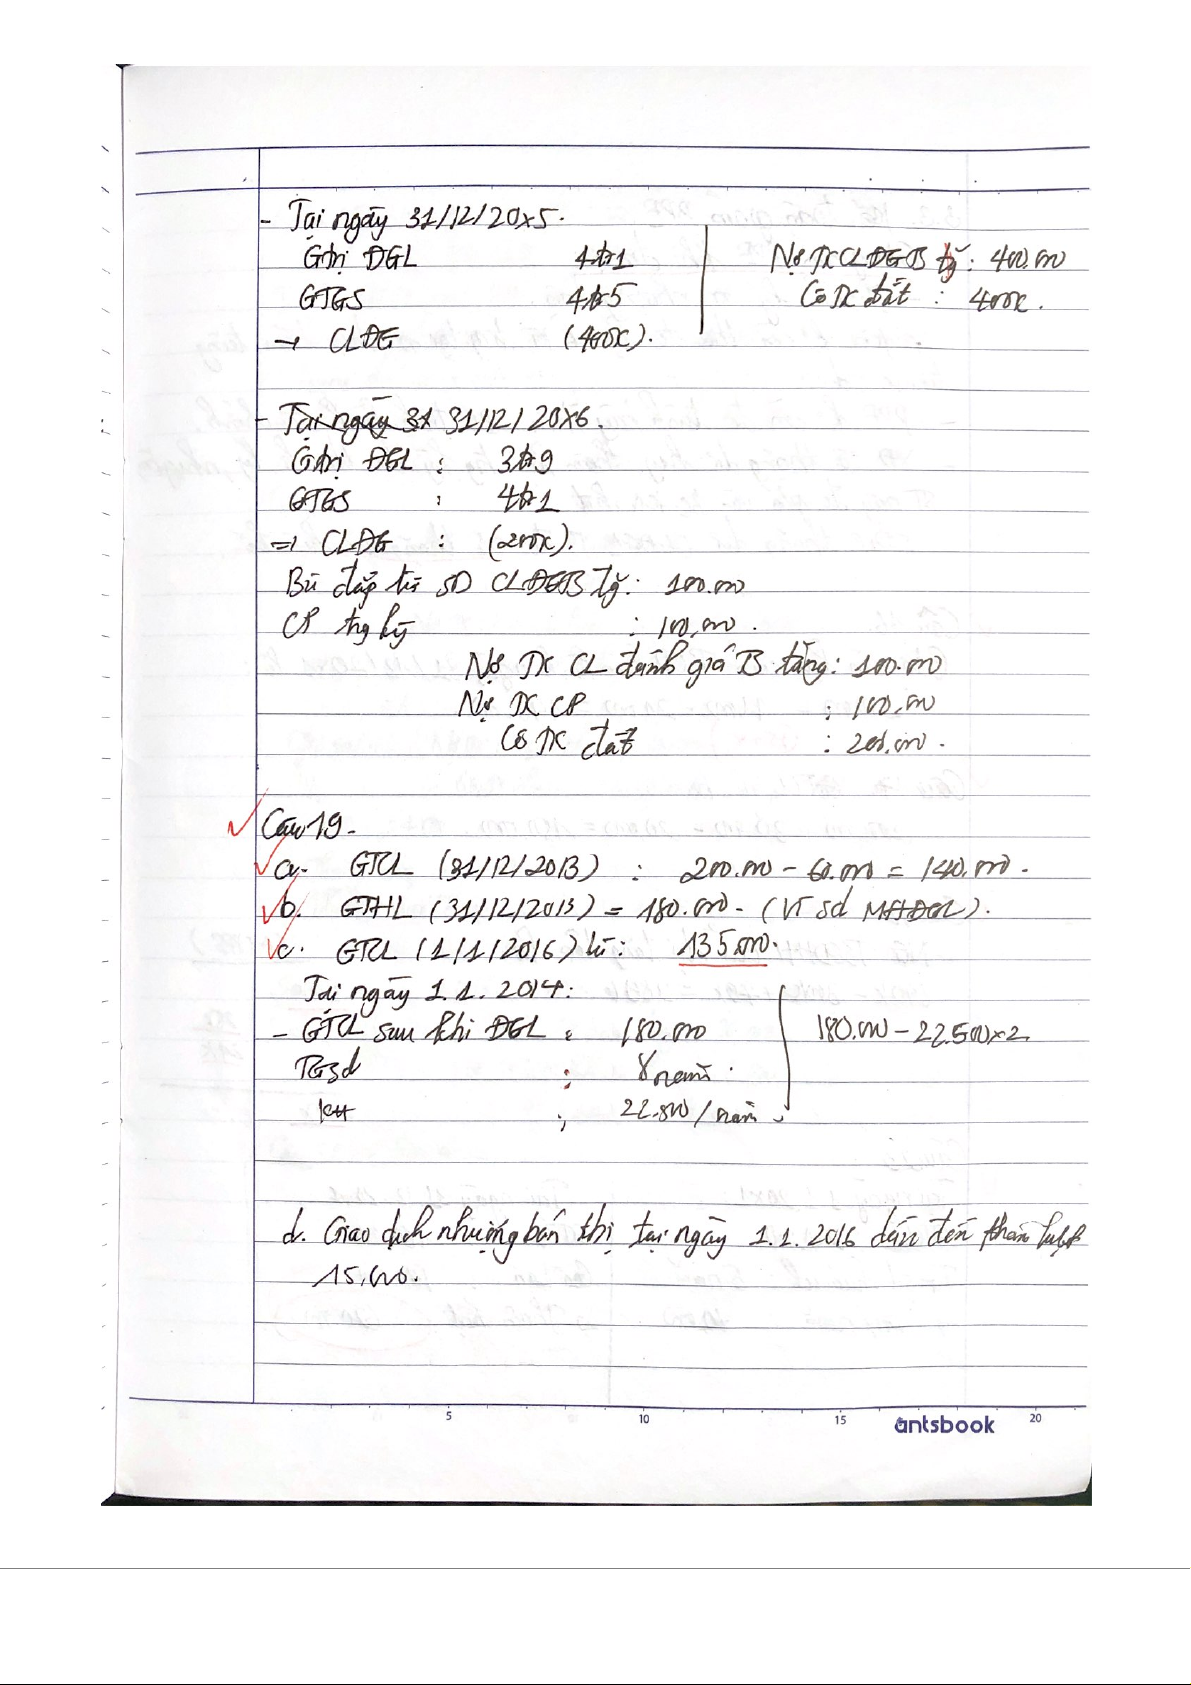 - Tại ngày 31/12/20x5.
Gtrị ĐGL 4tr1
GTGS 4tr5
→ CLĐG (400K).
Nợ TK CLĐGTS tg: 400.000
Có TK đất : 400K.
- Tại ngày 31 31/12/20x6.
Gtrị ĐGL : 3tr9
GTGS : 4tr1
=> CLĐG : (200K).
Bù đắp từ SD CLĐGTS tg: 100.000
CP trg kỳ : 100.000.
Nợ TK CL đánh giá TS tăng: 100.000
Nợ TK CP : 100.000
Có TK đất : 200.000.
Câu 19.
a. GTCL (31/12/2013) : 200.000 - 60.000 = 140.000.
b. GTHL (31/12/2013) = 180.000. (VT sd MHĐGL).
c. GTCL (1/1/2016) là: 135.000.
Tại ngày 1.1.2014:
- GTCL sau khi ĐGL : 180.000
TGsd : 8 năm.
KH : 22.500/năm.
180.000 - 22.500x2
d. Giao dịch nhượng bán thị tại ngày 1.1.2016 dẫn đến
15.000.
5 10 15 20
antsbook